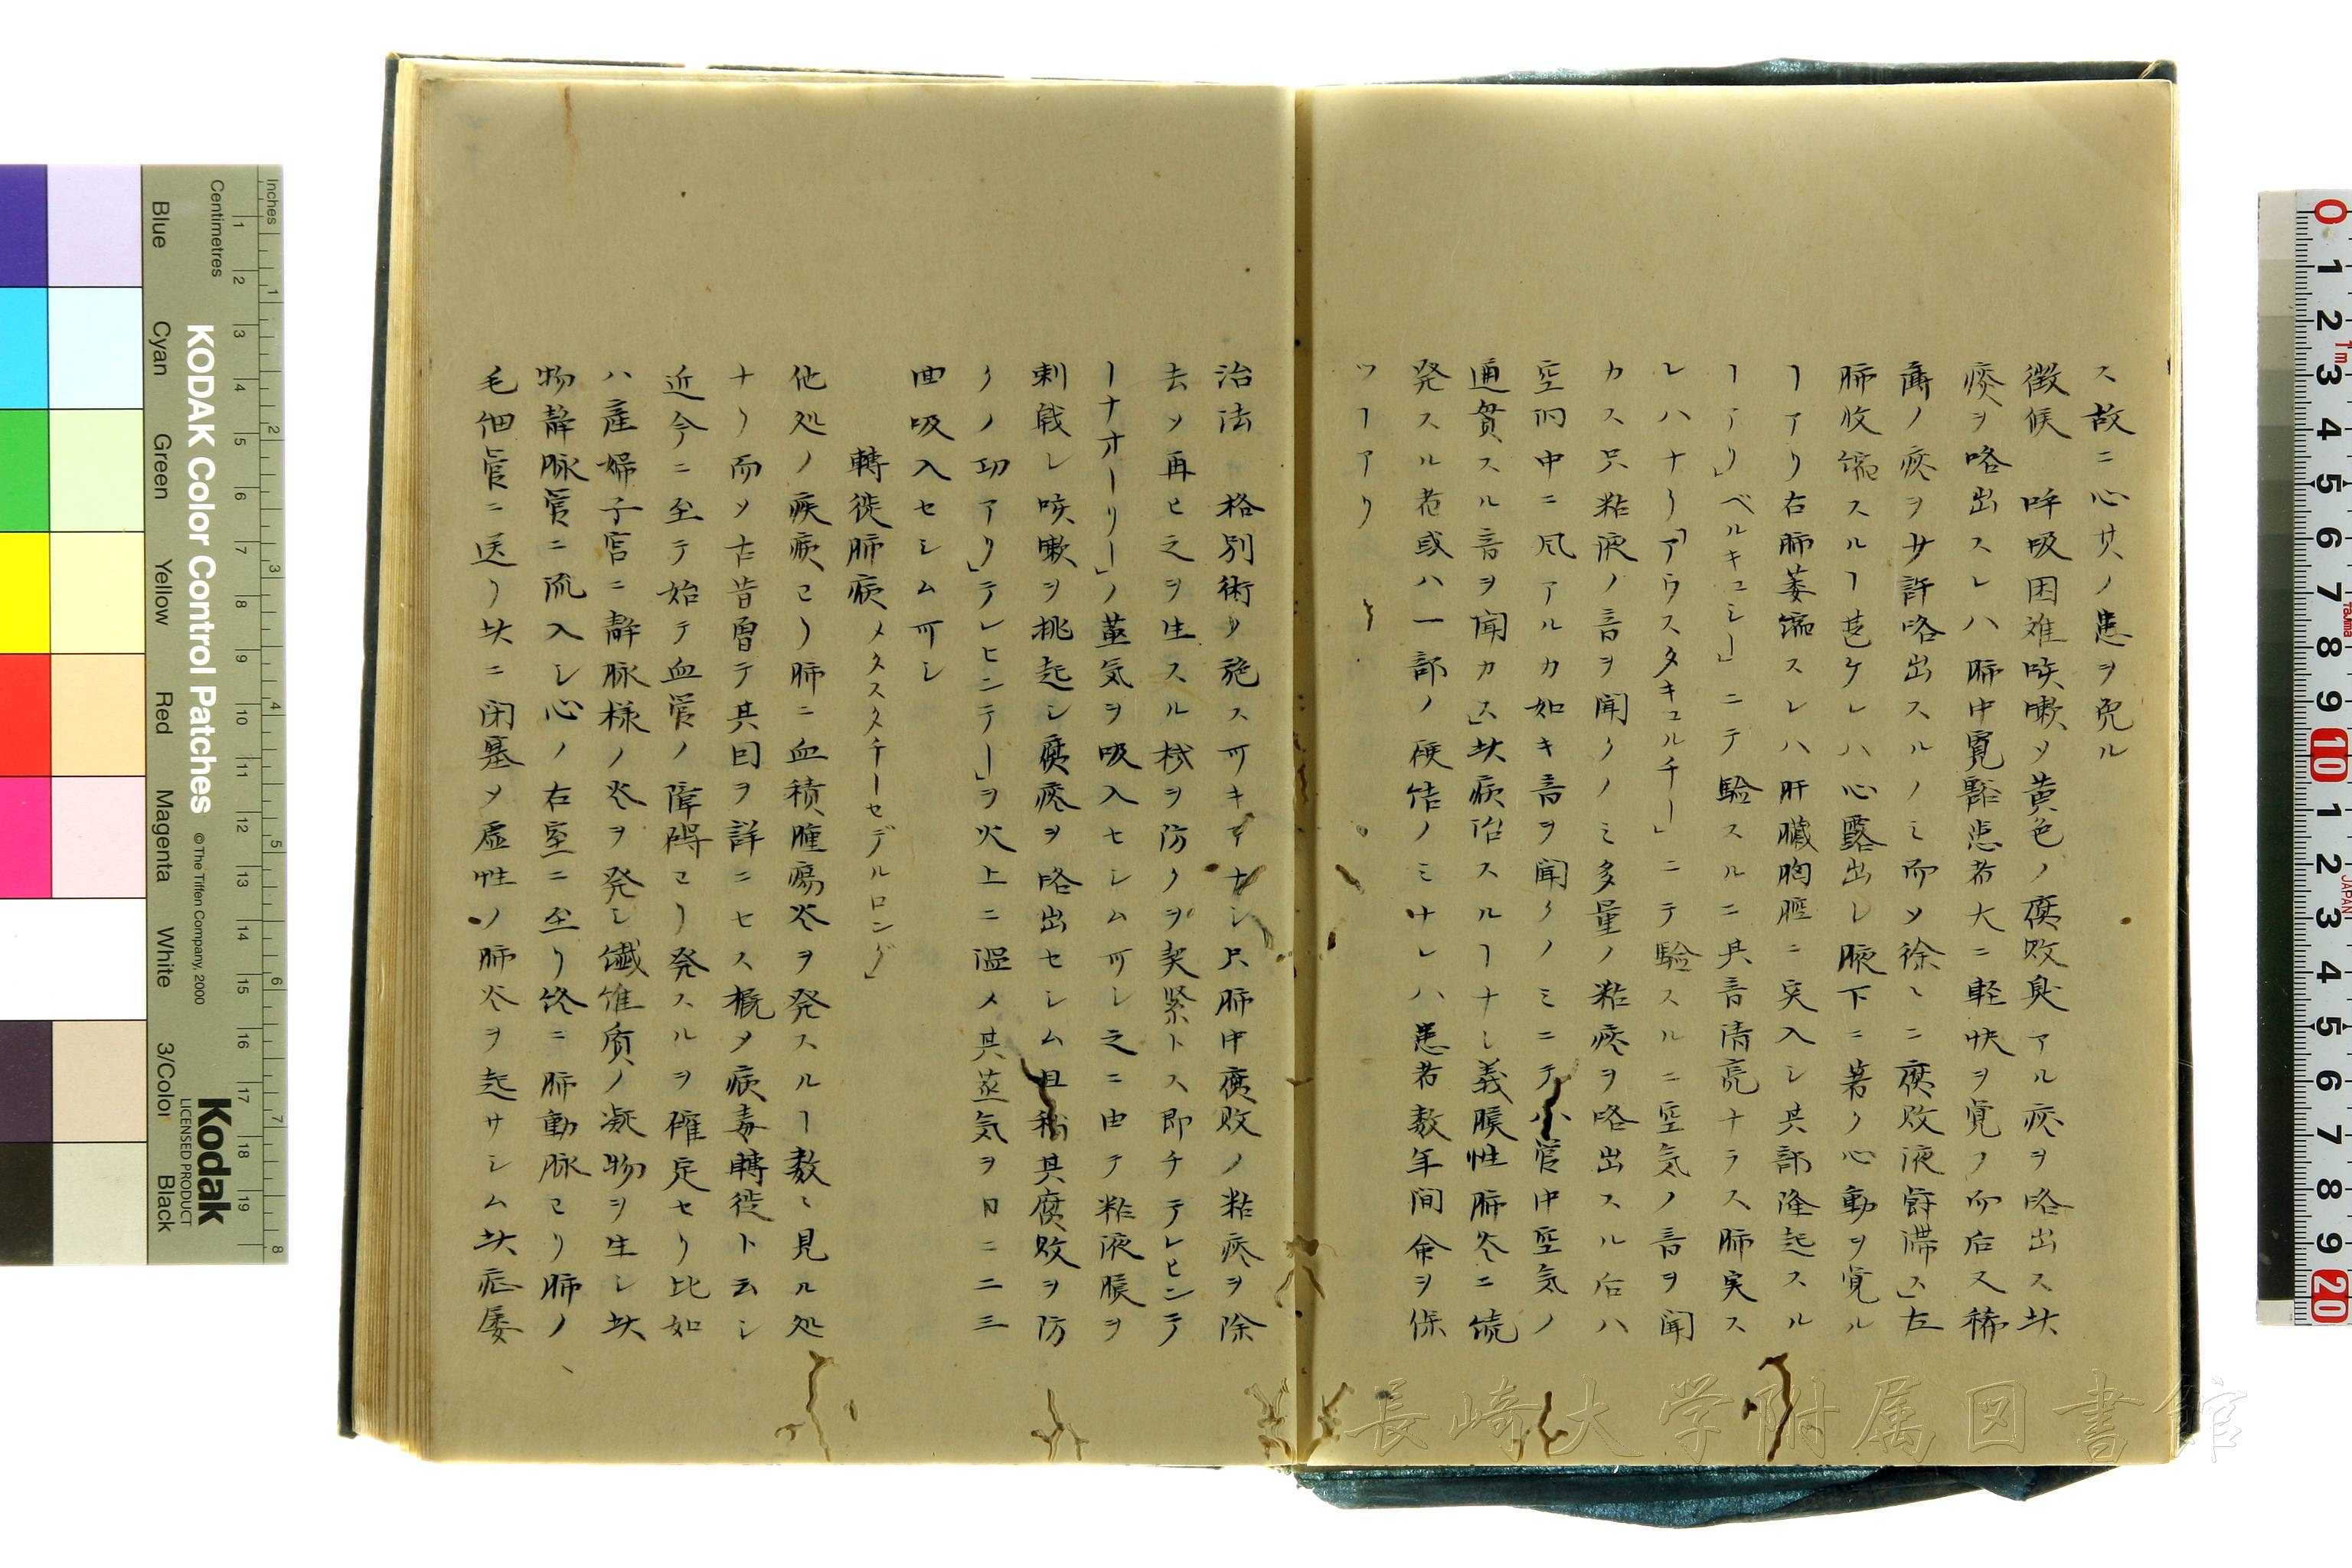 ス故ニ心サノ患ヲ免ル
徴候　呼吸困難咳嗽メ黄色ノ腐敗臭アル痰ヲ咯出ス此
痰ヲ咯出スレハ肺中寛豁患者大ニ軽快ヲ覚フ而后又稀
薄ノ痰ヲ少許咯出スルノミ而ソ徐〻ニ腐敗液欝滞ス」左
肺收縮スルヿ甚ケレハ心露出レ腋下ニ著ク心動ヲ覚ル
ヿアリ右肺萎縮スレハ肝臓胸腔ニ突入シ其部隆起スル
ヿアリ」ベルキュシー」ニテ驗スルニ其音清亮ナラス肺実ス
レハナリ「アウスタキュルチー」ニテ驗スルニ空気ノ音ヲ聞
カス只粘液ノ音ヲ聞クノミ多量ノ粘痰ヲ咯出スル后ハ
空洞中ニ風アルカ如キ音ヲ聞クノミニテ小管中空気ノ
通貫スル音ヲ聞カス」此病治スルヿナシ義膜性肺炎ニ続
発スル者或ハ一部ノ硬結ノミナレハ患者数年間命ヲ保
ツヿアリ
治法　格別術ノ施ス可キナシ只肺中腐敗ノ粘痰ヲ除
去ソ再ヒ之ヲ生スルヲ防クヲ契緊トス即チテレヒンテ
ーナオーリー」ノ蒸気ヲ吸入セシム可シ之ニ由テ粘液膜ヲ
刺戟レ咳嗽ヲ挑起シ腐痰ヲ咯出セシム且其腐敗ヲ防
クノ功アリ」テレヒンテー」ヲ火上ニ温メ其蒸気ヲ日ニ二三
回吸入セシム可シ
轉徙肺病メタスタチーセデルロング」
他処ノ疾病ヨリ肺ニ血積腫瘍炎ヲ発スルヿ数〻見ル処
ナリ而ソ古昔曽テ其因ヲ詳ニセス概メ病毒轉徙ト云シ
近今ニ至テ始テ血管ノ障碍ヨリ発スルヲ確定セリ比如
ハ産婦子宮ニ靜脉様ノ炎ヲ発シ纎維質ノ凝物ヲ生レ此
物靜脉管ニ流入シ心ノ右室ニ至リ終ニ肺動脉ヨリ肺ノ
毛細管ニ送リ此ニ閉塞メ虚性ノ肺炎ヲ起サシム此症屡
Blue
Cyan
Green
Yellow
Red
Magenta
White
3/Color
Black
Inches
Centimetres
KODAK Color Control Patches
© The Tiffen Company, 2000
Kodak
LICENSED PRODUCT
JAPAN
長崎大学附属図書館